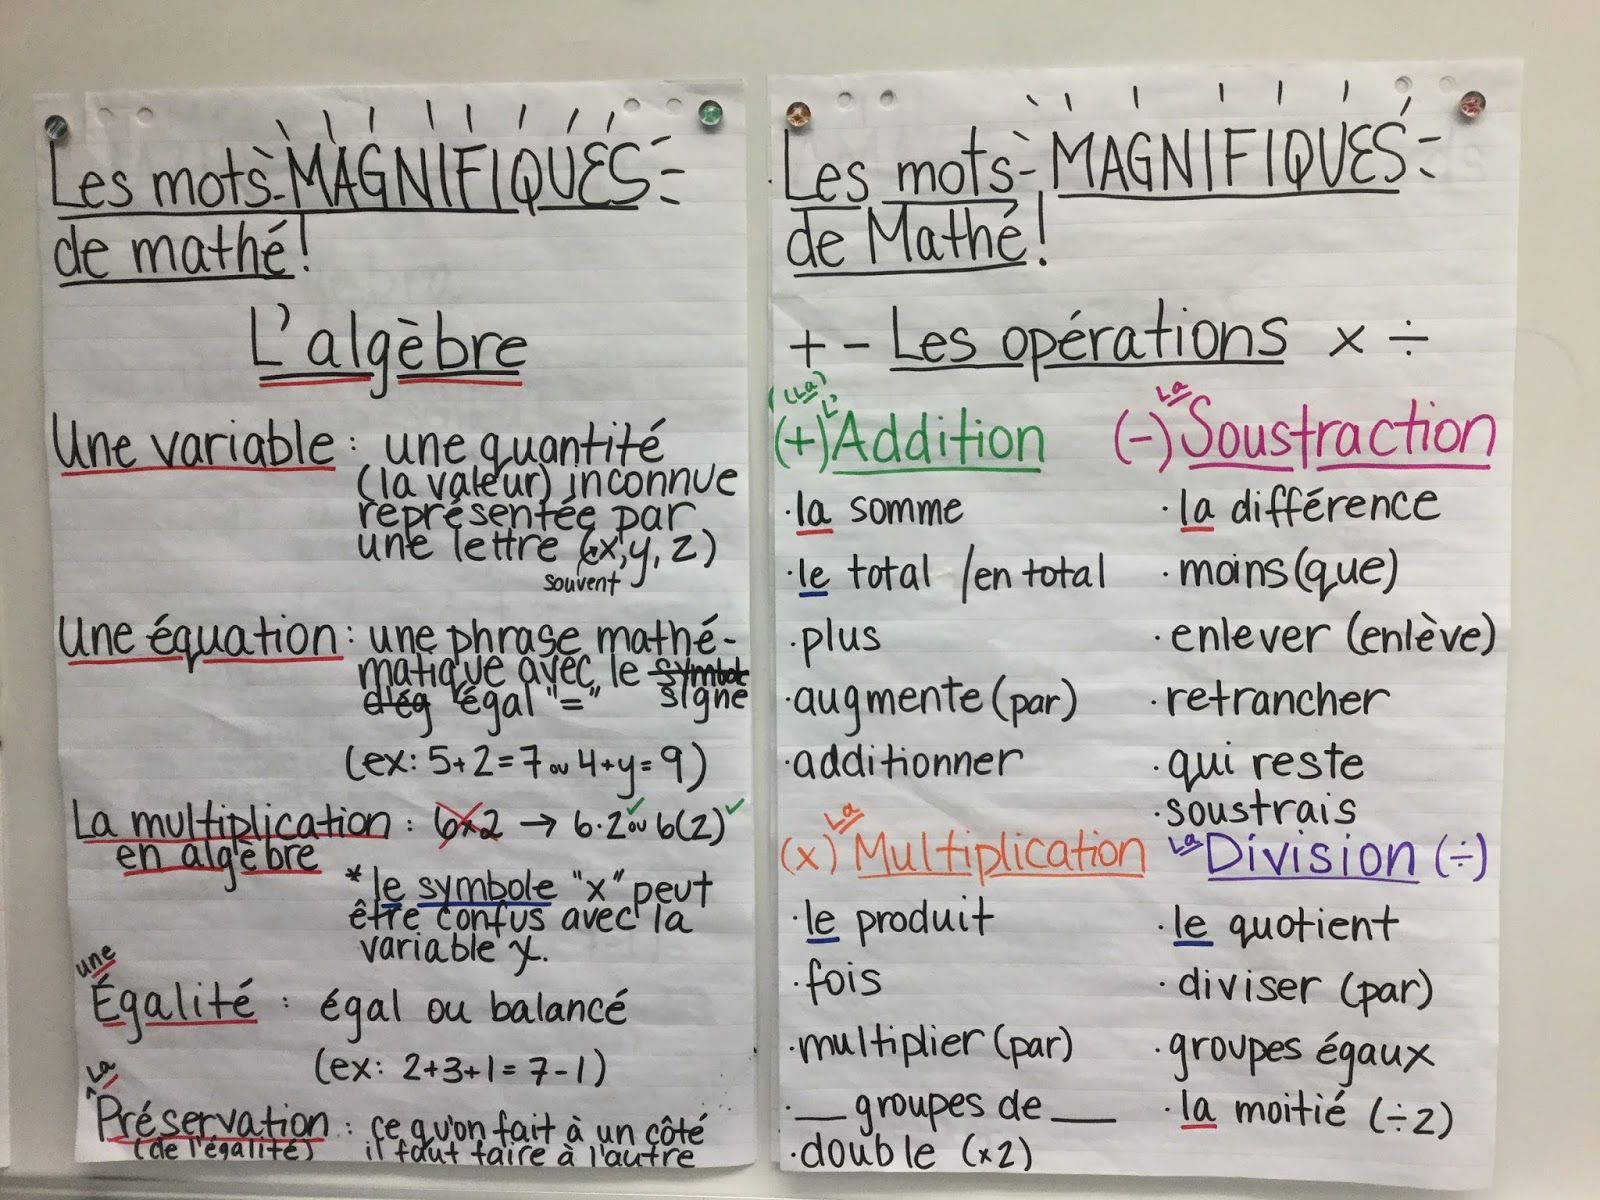 Les mots MAGNIFIQUES
de mathé!
L'algèbre
Une variable : une quantité
(la valeur) inconnue
représentée par
une lettre (x, y, z)
souvent
Une équation : une phrase mathé-
matique avec le symbole
d'ég "égal "=" signe
(ex: 5+2=7 ou 4+y=9)
La multiplication : 6x2 → 6·2 ou 6(2)
en algèbre
* le symbole "x" peut
être confus avec la
variable x.
une
Égalité : égal ou balancé
(ex: 2+3+1=7-1)
La
Préservation : ce qu'on fait à un côté
(de l'égalité) il faut faire à l'autre
Les mots MAGNIFIQUES
de Mathé!
+ - Les opérations x ÷
(La)
(+) L'Addition
·la somme
·le total /en total
·plus
·augmente (par)
·additionner
La
(-) Soustraction
·la différence
·moins (que)
·enlever (enlève)
·retrancher
·qui reste
·soustrais
La
(x) Multiplication
·le produit
·fois
·multiplier (par)
·__ groupes de __
·double (x2)
La Division (÷)
·le quotient
·diviser (par)
·groupes égaux
·la moitié (÷2)